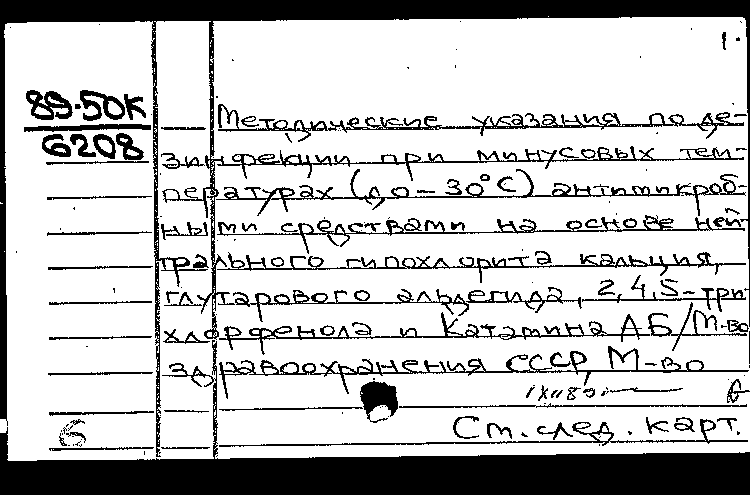 1.
89-50К
6208
Методические указания по де-
зинфекции при минусовых тем-
пературах (до -30°С) антимикроб-
ными средствами на основе ней-
трального гипохлорита кальция,
глутарового альдегида, 2,4,5-три-
хлорфенола и Катамина АБ/М-во
здравоохранения СССР, М-во
б
См. след. карт.